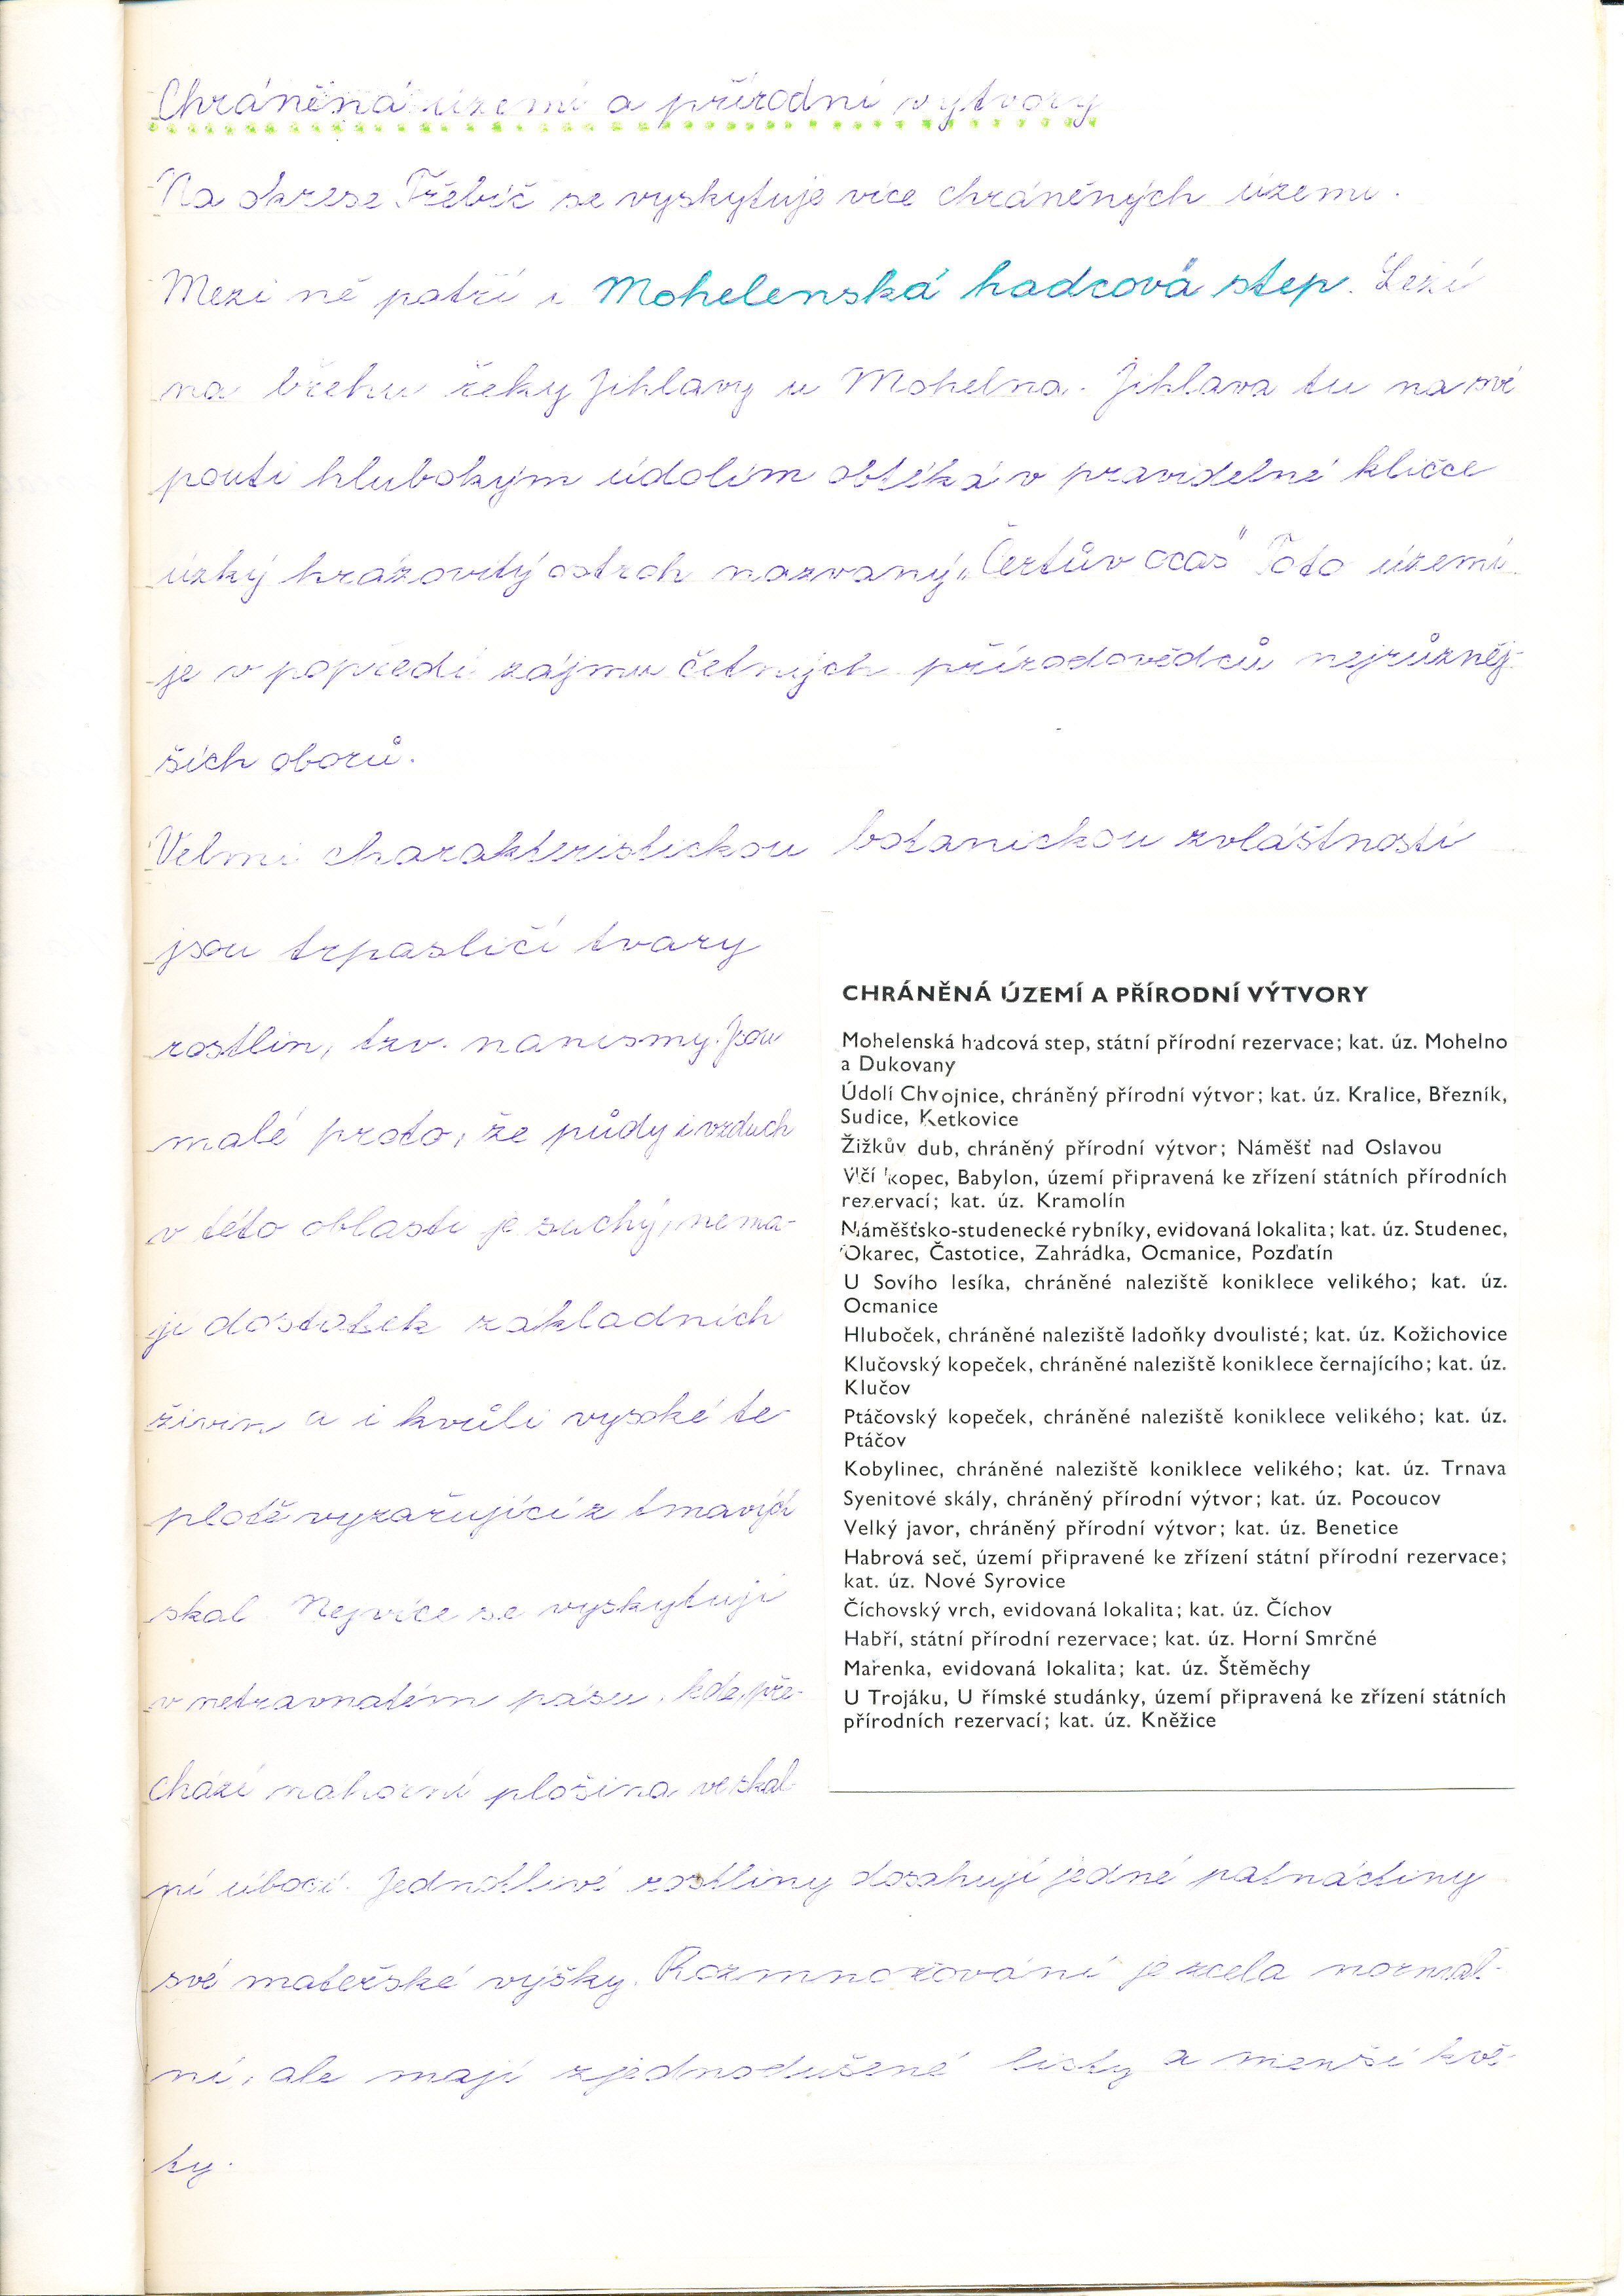 Chráněná území a přírodní výtvory
Na okrese Třebíč se vyskytuje více chráněných území.
Mezi ně patří i Mohelenská hadcová step. Leží
na břehu řeky Jihlavy u Mohelna. Jihlava tu na své
pouti hlubokým údolím obtéká v pravidelné kličce
úzký hrázovitý ostroh nazvaný „Čertův ocas" Toto území
je v popředí zájmu četných přírodovědců nejrůzněj-
ších oborů.
Velmi charakteristickou botanickou zvláštností
jsou trpasličí tvary
rostlin, tzv. nanismy. Jsou
malé proto, že půdy i vzduch
v této oblasti je suchý, nema-
jí dostatek základních
živin a i kvůli vysoké te-
plotě vyzařující z tmavých
skal. Nejvíce se vyskytují
v netravnatém pásu, kde pře-
chází náhorní plošina ve skal-
ní úbočí. Jednotlivé rostliny dosahují jedné patnáctiny
své mateřské výšky. Rozmnožování je zcela normál-
ní, ale mají zjednodušené listy a menší kvě-
ty.
CHRÁNĚNÁ ÚZEMÍ A PŘÍRODNÍ VÝTVORY
Mohelenská hadcová step, státní přírodní rezervace; kat. úz. Mohelno
a Dukovany
Údolí Chvojnice, chráněný přírodní výtvor; kat. úz. Kralice, Březník,
Sudice, Ketkovice
Žižkův dub, chráněný přírodní výtvor; Náměšť nad Oslavou
Vlčí kopec, Babylon, území připravená ke zřízení státních přírodních
rezervací; kat. úz. Kramolín
Náměšťsko-studenecké rybníky, evidovaná lokalita; kat. úz. Studenec,
Okarec, Častotice, Zahrádka, Ocmanice, Pozďatín
U Sovího lesíka, chráněné naleziště koniklece velikého; kat. úz.
Ocmanice
Hluboček, chráněné naleziště ladoňky dvoulisté; kat. úz. Kožichovice
Klučovský kopeček, chráněné naleziště koniklece černajícího; kat. úz.
Klučov
Ptáčovský kopeček, chráněné naleziště koniklece velikého; kat. úz.
Ptáčov
Kobylinec, chráněné naleziště koniklece velikého; kat. úz. Trnava
Syenitové skály, chráněný přírodní výtvor; kat. úz. Pocoucov
Velký javor, chráněný přírodní výtvor; kat. úz. Benetice
Habrová seč, území připravené ke zřízení státní přírodní rezervace;
kat. úz. Nové Syrovice
Číchovský vrch, evidovaná lokalita; kat. úz. Číchov
Habří, státní přírodní rezervace; kat. úz. Horní Smrčné
Mařenka, evidovaná lokalita; kat. úz. Štěměchy
U Trojáku, U římské studánky, území připravená ke zřízení státních
přírodních rezervací; kat. úz. Kněžice